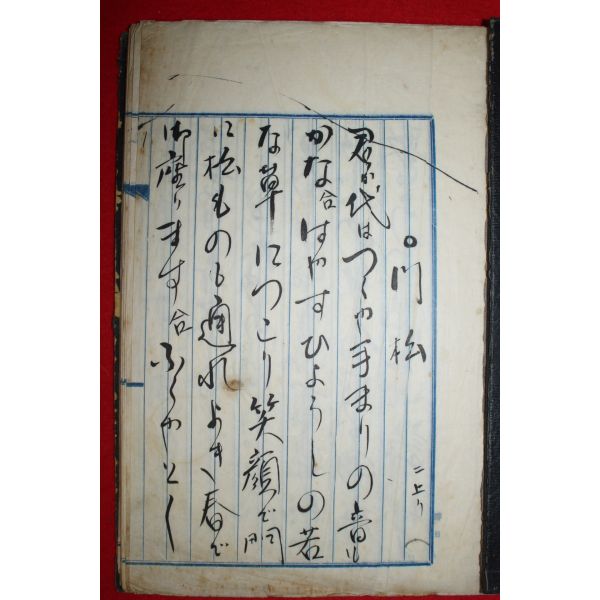 ○門松
二上り
君が代はつくや手まりの音も
かな合はやすひやうしの若
な草につこり笑顔で門
に松ものも通れよき春で
御座ります合ふくやとく